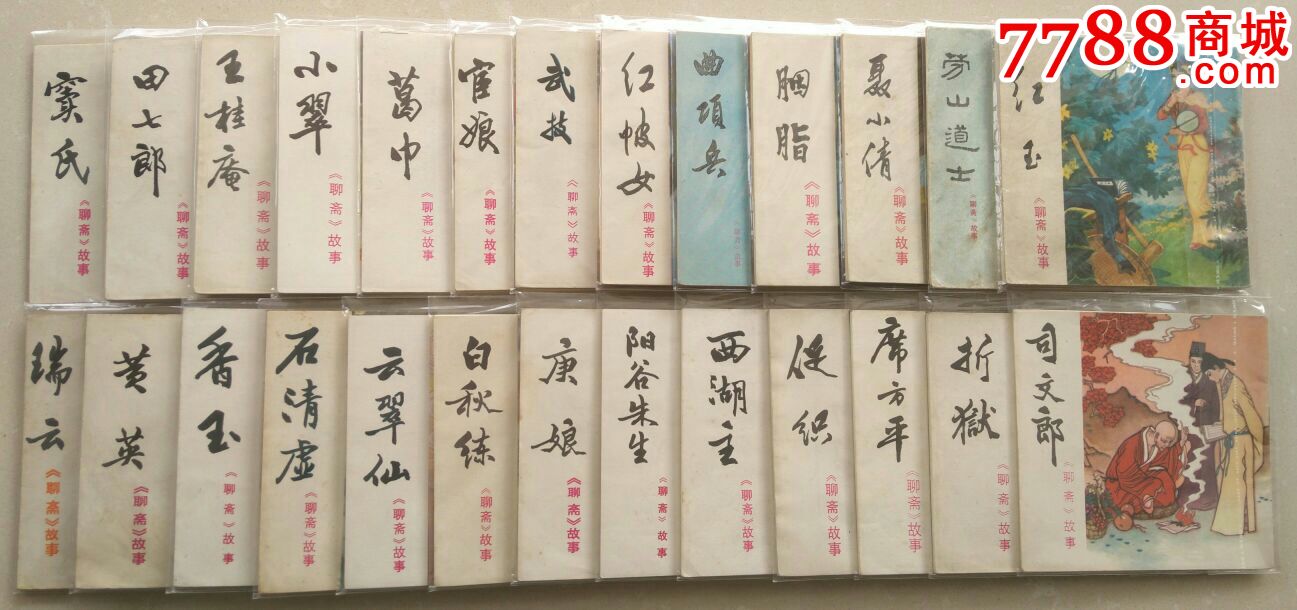 7788商城
.com
窦氏
《聊斋》故事
田七郎
《聊斋》故事
王桂庵
《聊斋》故事
小翠
《聊斋》故事
葛巾
《聊斋》故事
宦娘
《聊斋》故事
武技
《聊斋》故事
红帔女
《聊斋》故事
曲项兵
胭脂
《聊斋》故事
聂小倩
《聊斋》故事
劳山道士
《聊斋》故事
红玉
《聊斋》故事
瑞云
《聊斋》故事
黄英
《聊斋》故事
香玉
《聊斋》故事
石清虚
《聊斋》故事
云翠仙
《聊斋》故事
白秋练
《聊斋》故事
庚娘
《聊斋》故事
阳谷朱生
《聊斋》故事
西湖主
《聊斋》故事
促织
《聊斋》故事
席方平
《聊斋》故事
折獄
《聊斋》故事
司文郎
《聊斋》故事